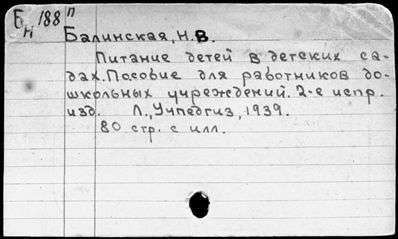 188 п
Балинская, Н.В.
Питание детей в детских са-
дах. Пособие для работников до-
школьных учреждений. 2-е испр.
изд. Л., Учпедгиз, 1939.
80 стр. с илл.